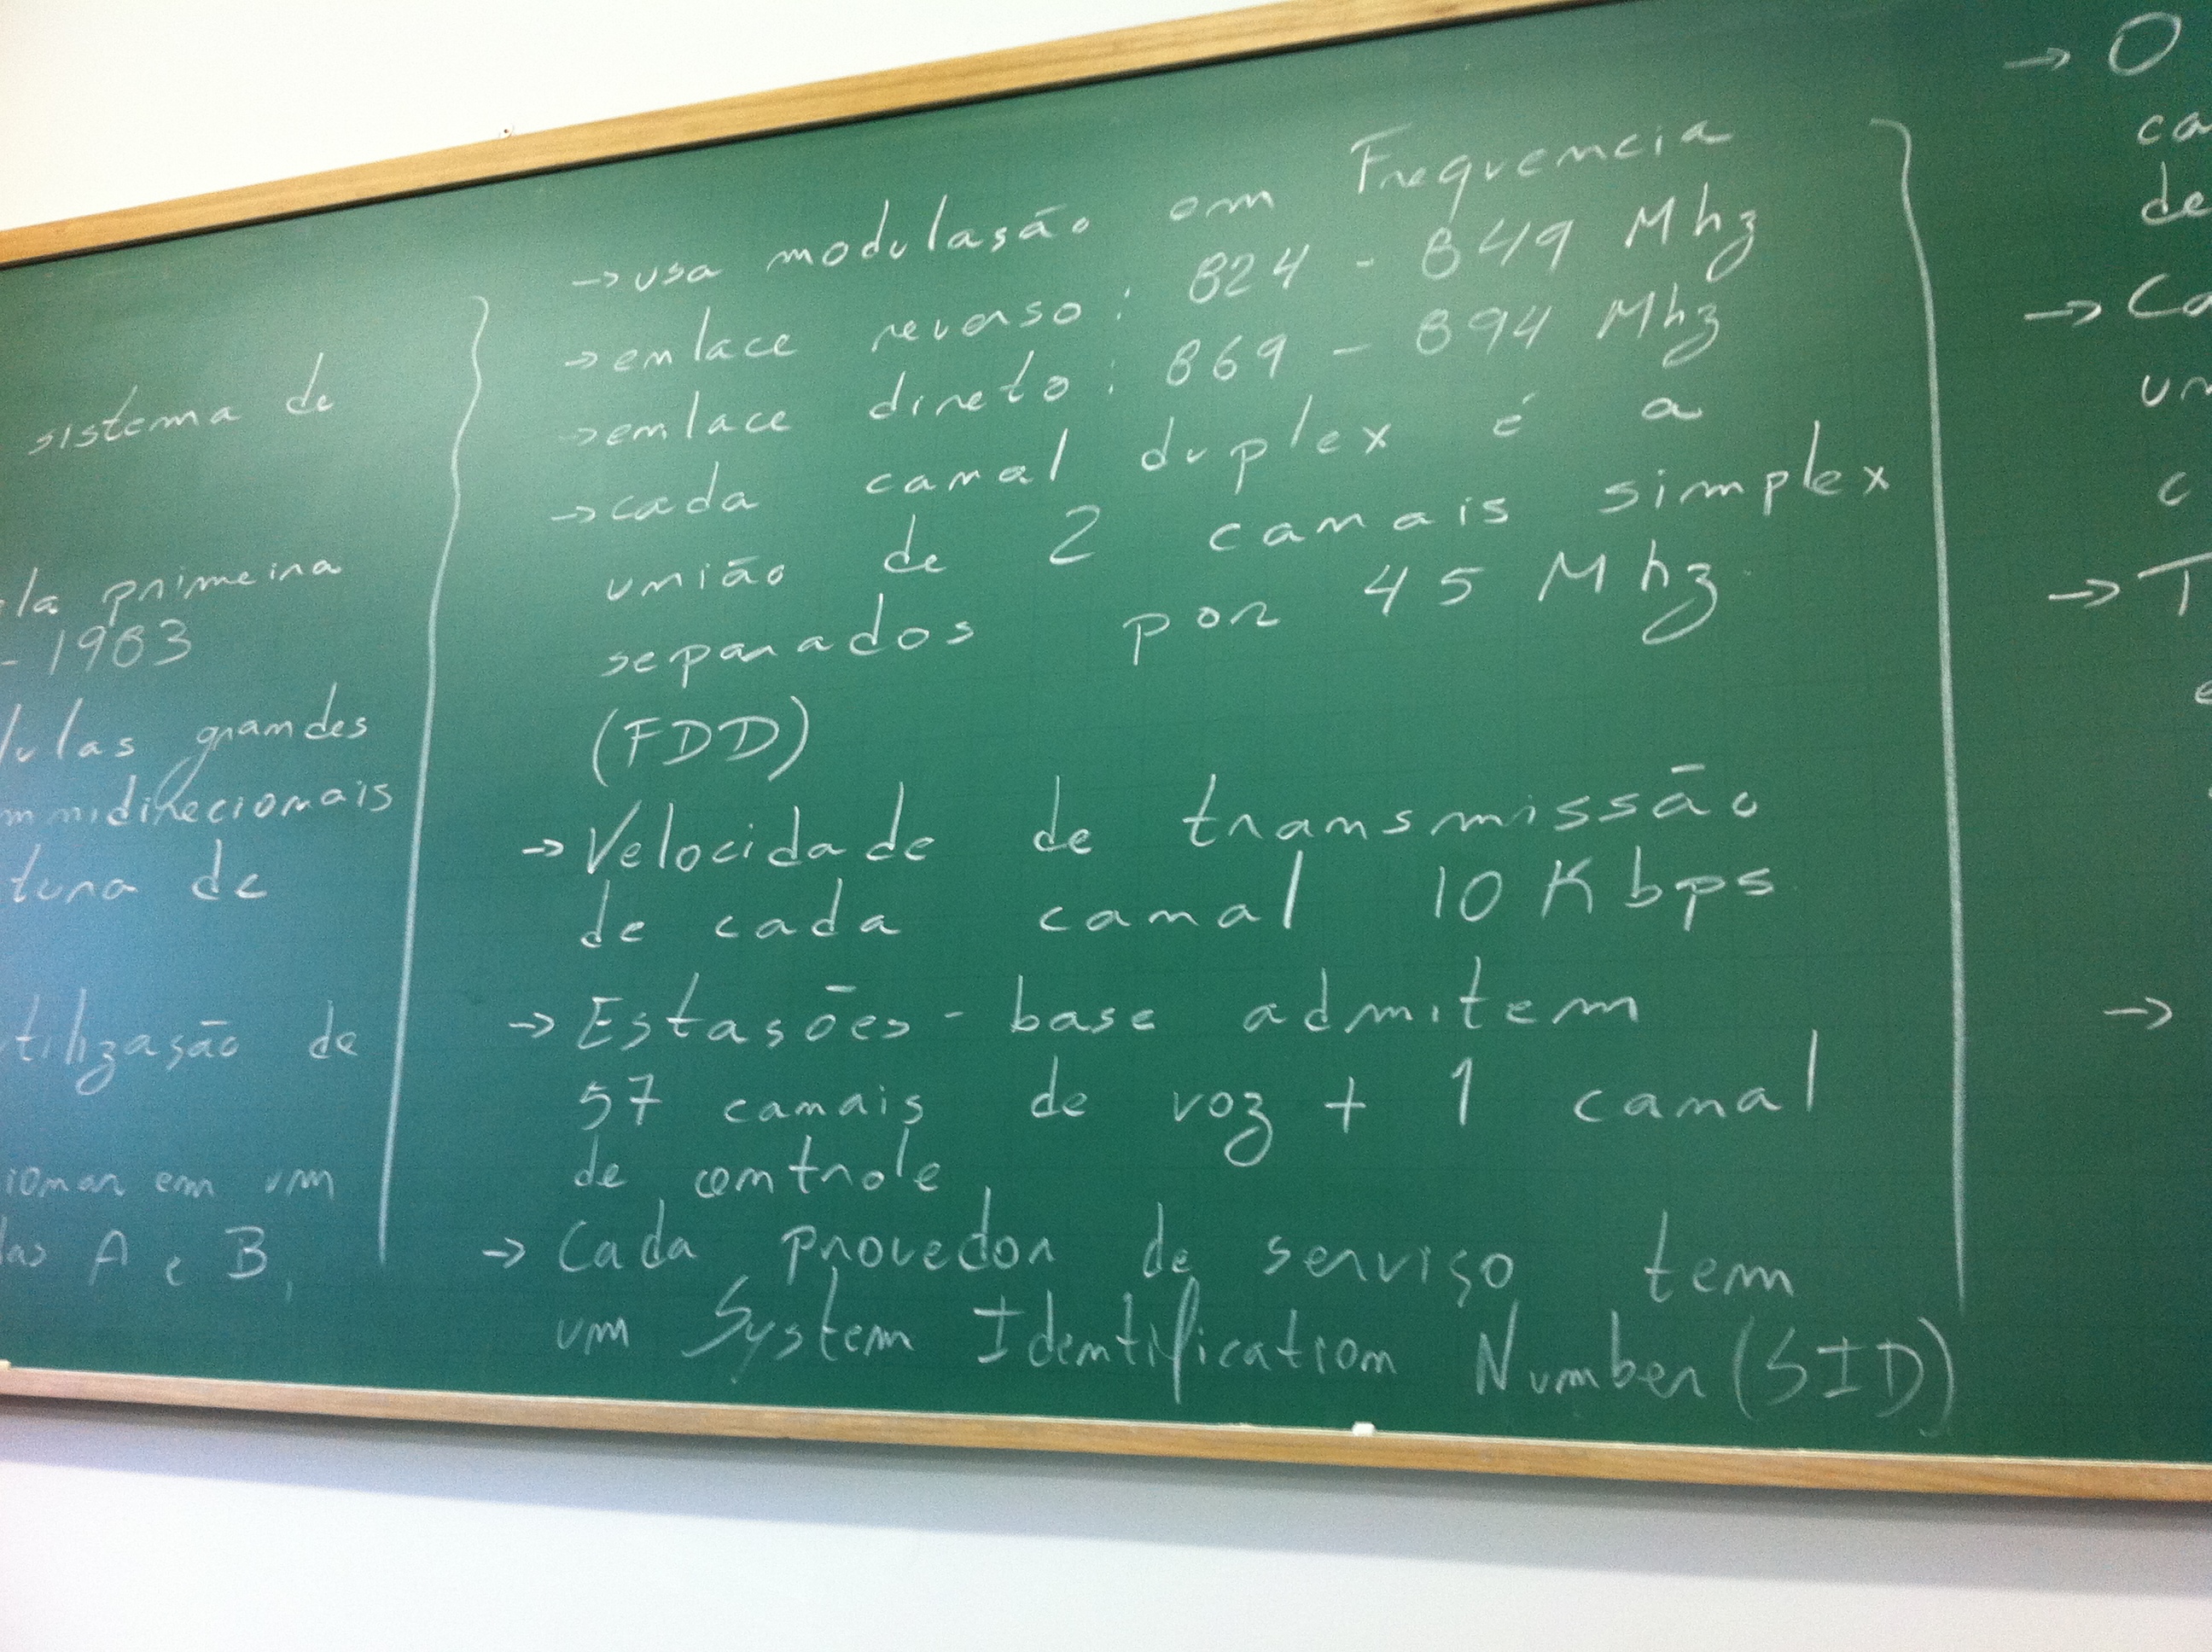 sistema de
la primeira
- 1983
lulas grandes
mnidirecionais
tura de
tilização de
ionar em um
das A e B,
→ usa modulasão em Frequencia
→ enlace reverso: 824 - 849 Mhz
→ enlace direto: 869 - 894 Mhz
→ cada canal duplex é a
união de 2 canais simplex
separados por 45 Mhz
(FDD)
→ Velocidade de transmissão
de cada canal 10 Kbps
→ Estasões-base admitem
57 canais de voz + 1 canal
de controle
→ Cada provedor de serviço tem
um System Identification Number (SID)
→ O
ca
de
→ Co
um
c
→ T
e
→